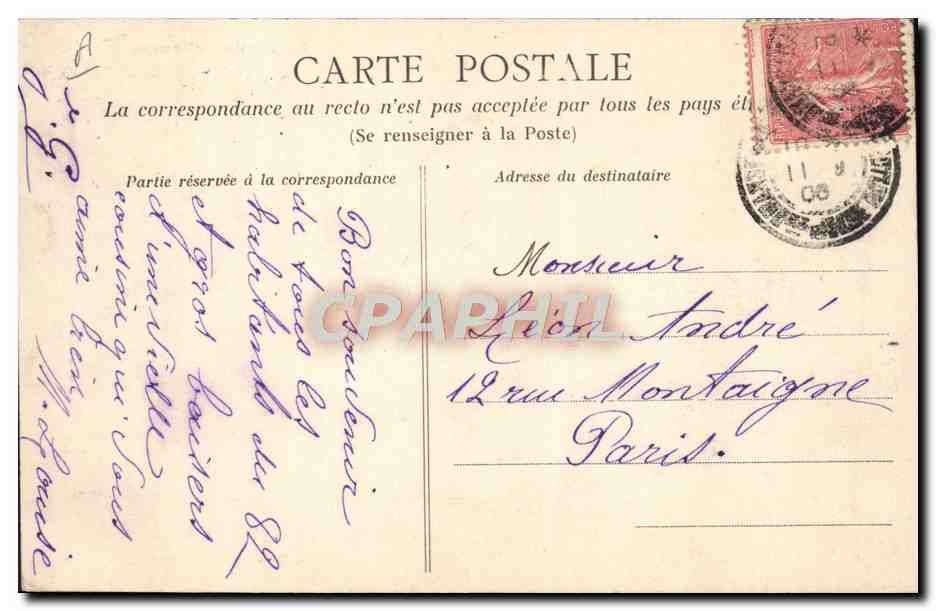 A
CARTE POSTALE
La correspondance au recto n'est pas acceptée par tous les pays ét
(Se renseigner à la Poste)
Partie réservée à la correspondance
Adresse du destinataire
11 9
06
Monsieur
Léon André
12 rue Montaigne
Paris.
Bon souvenir
de tous les
habitants du 82
et gros baisers
d'une vieille
cousine qui vous
aime bien
M. Louise
CPAPHIL